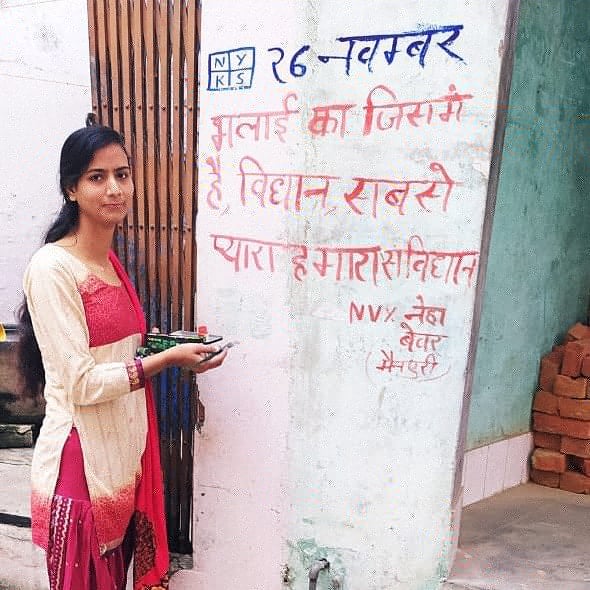 NY
KS
२6 नवम्बर
मलाई का जिसमें
है, विधान, सबसे
प्यारा हमारा संविधान
NVY. नेहा
बेवर
(मैनपुरी)